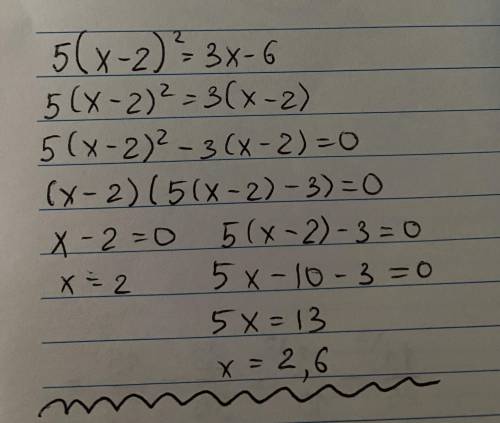 5(x-2)²=3x-6
5(x-2)²=3(x-2)
5(x-2)²-3(x-2)=0
(x-2)(5(x-2)-3)=0
x-2=0 5(x-2)-3=0
x=2 5x-10-3=0
5x=13
x=2,6